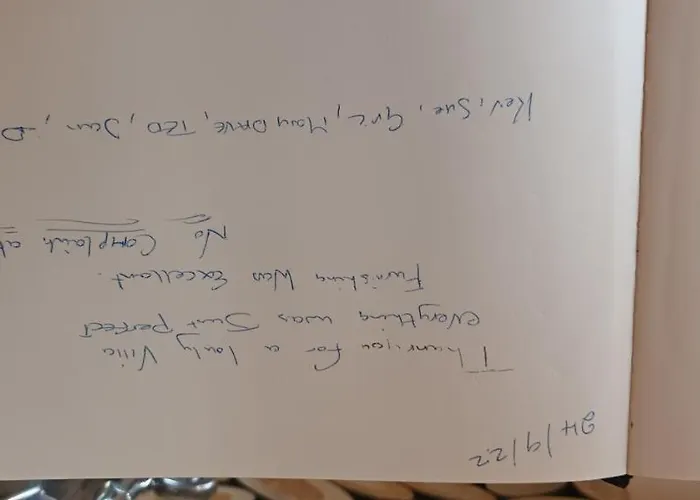 24/9/22
Thankyou for a lovly Villa
everything was Just perfect
Furnishing Was Excellant.
No Complaint at
Kev, Sue, Gric, Mary Dave, TED, Jean,